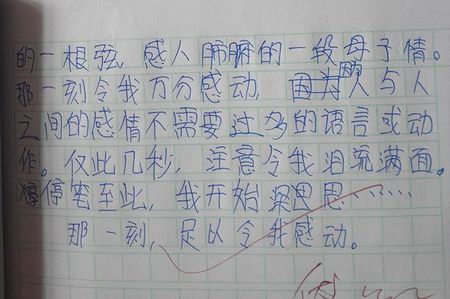 的一根弦,感人肺腑的一段母子情。
那一刻令我万分感动,因为人与人
之间的感情不需要过多的语言或动
作。仅此几秒,注意令我泪流满面。
停笔至此,我开始深思思……
那一刻,足以令我感动。